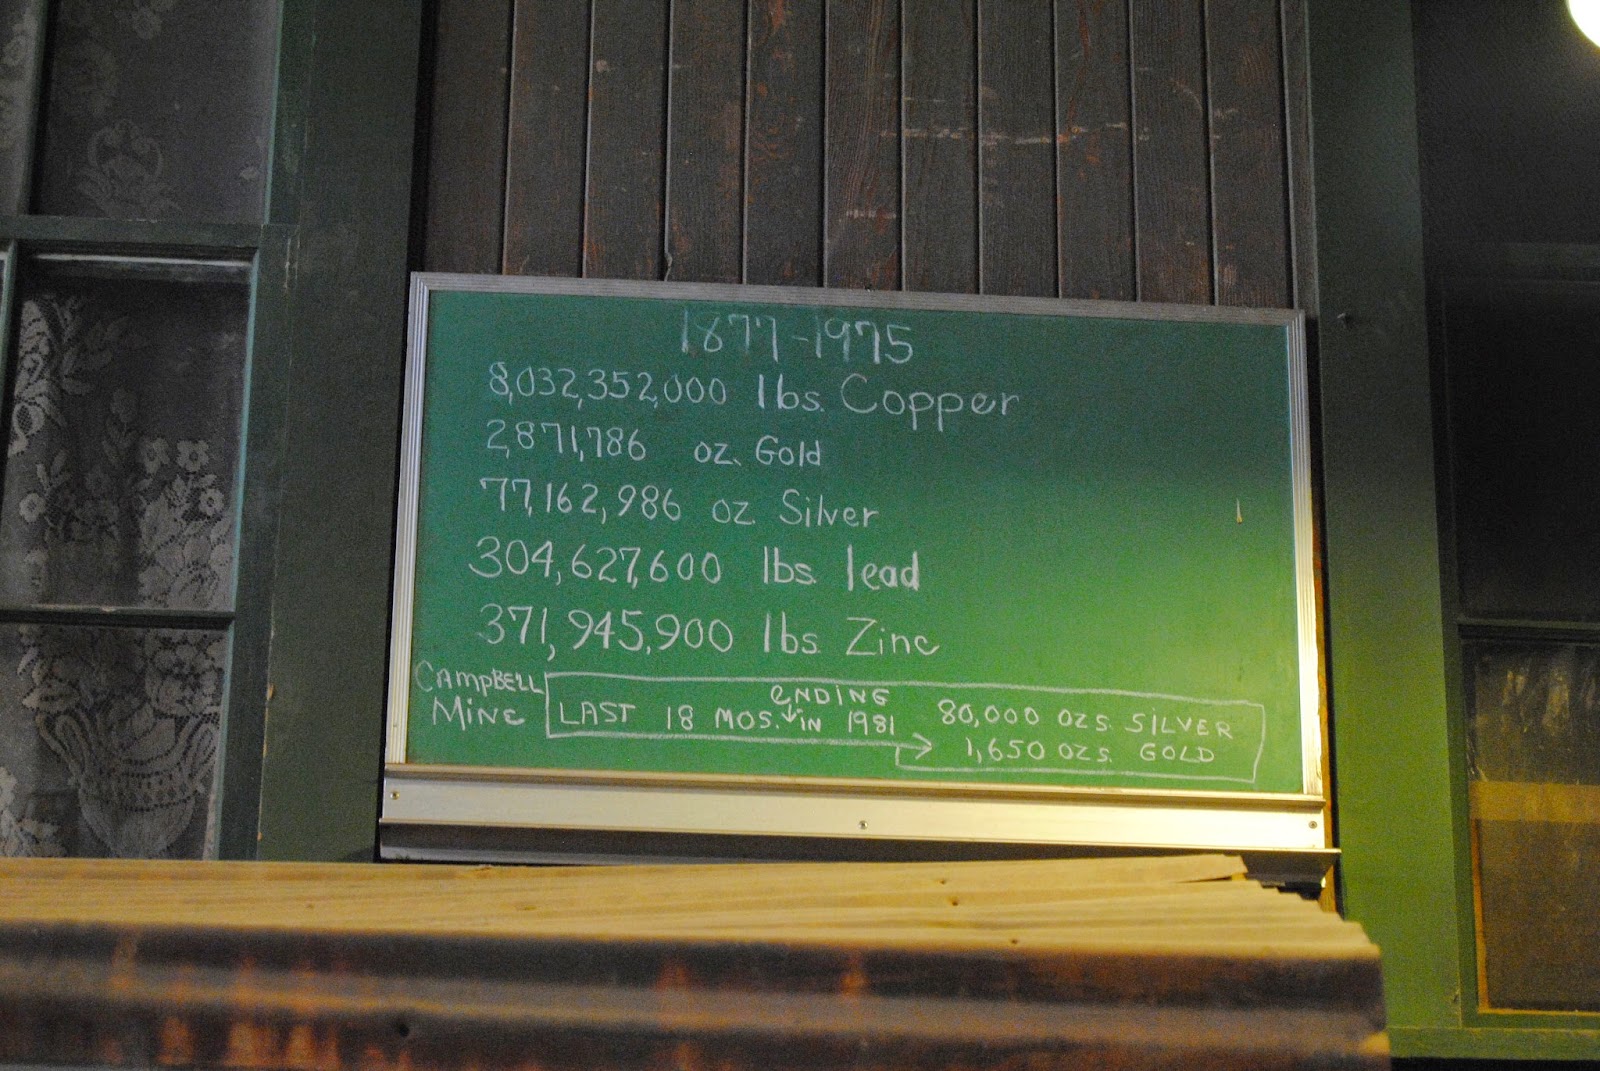 1877-1975
8,032,352,000 lbs. Copper
2,871,786 oz. Gold
77,162,986 oz. Silver
304,627,600 lbs. lead
371,945,900 lbs. Zinc
CAMPBELL
MINE
ENDING
LAST 18 MOS. IN 1981
80,000 OZS. SILVER
1,650 OZS. GOLD